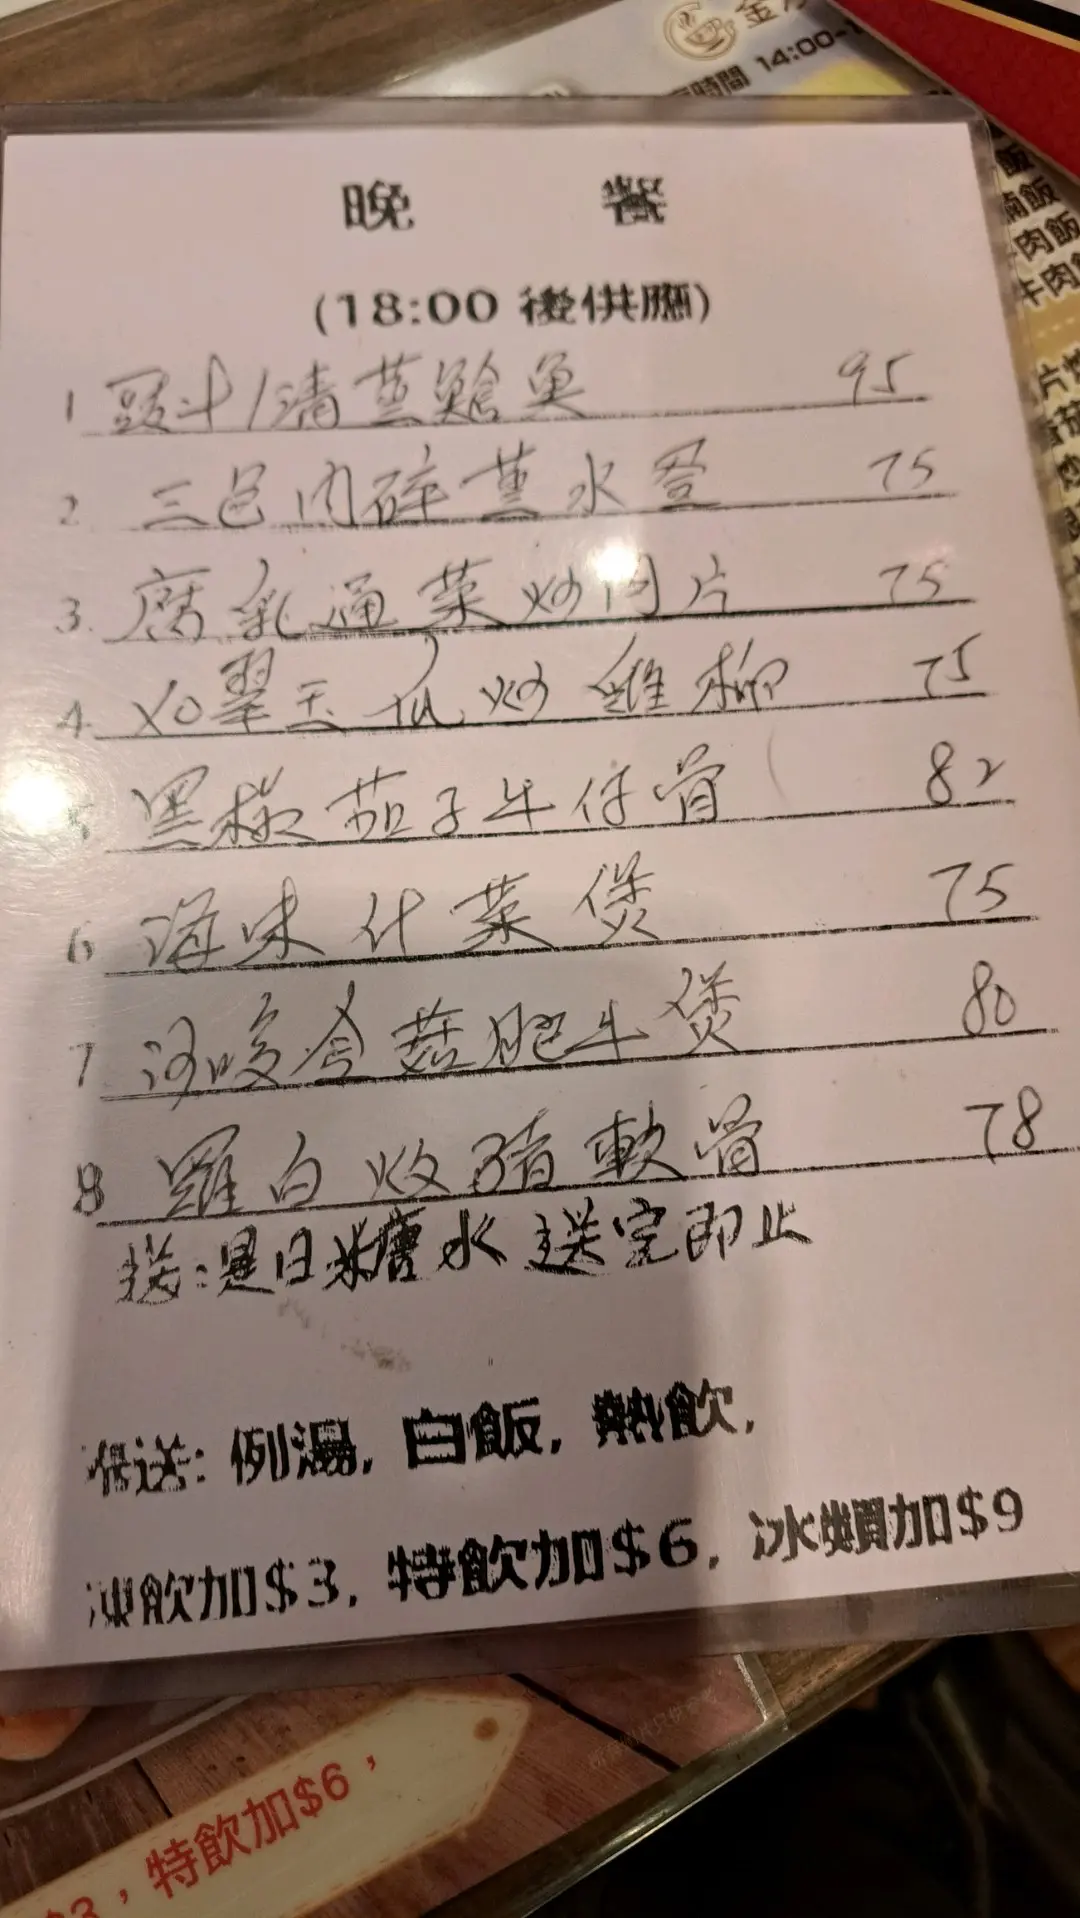 金
時間 14:00-1
飯
飯
肉飯
牛肉
晚 餐
(18:00 後供應)
1 豉汁/清蒸鯰魚 95
2 三色肉碎蒸水蛋 75
3. 腐乳通菜炒肉片 75
4. XO翠玉瓜炒雞柳 75
5 黑椒茄子牛仔骨 82
6 海味什菜煲 75
7 沙嗲冬菇肥牛煲 80
8 羅白炆豬軟骨 78
送:是日糖水 送完即止
送: 例湯, 白飯, 熱飲,
凍飲加$3, 特飲加$6, 冰類加$9
$3,特飲加$6,